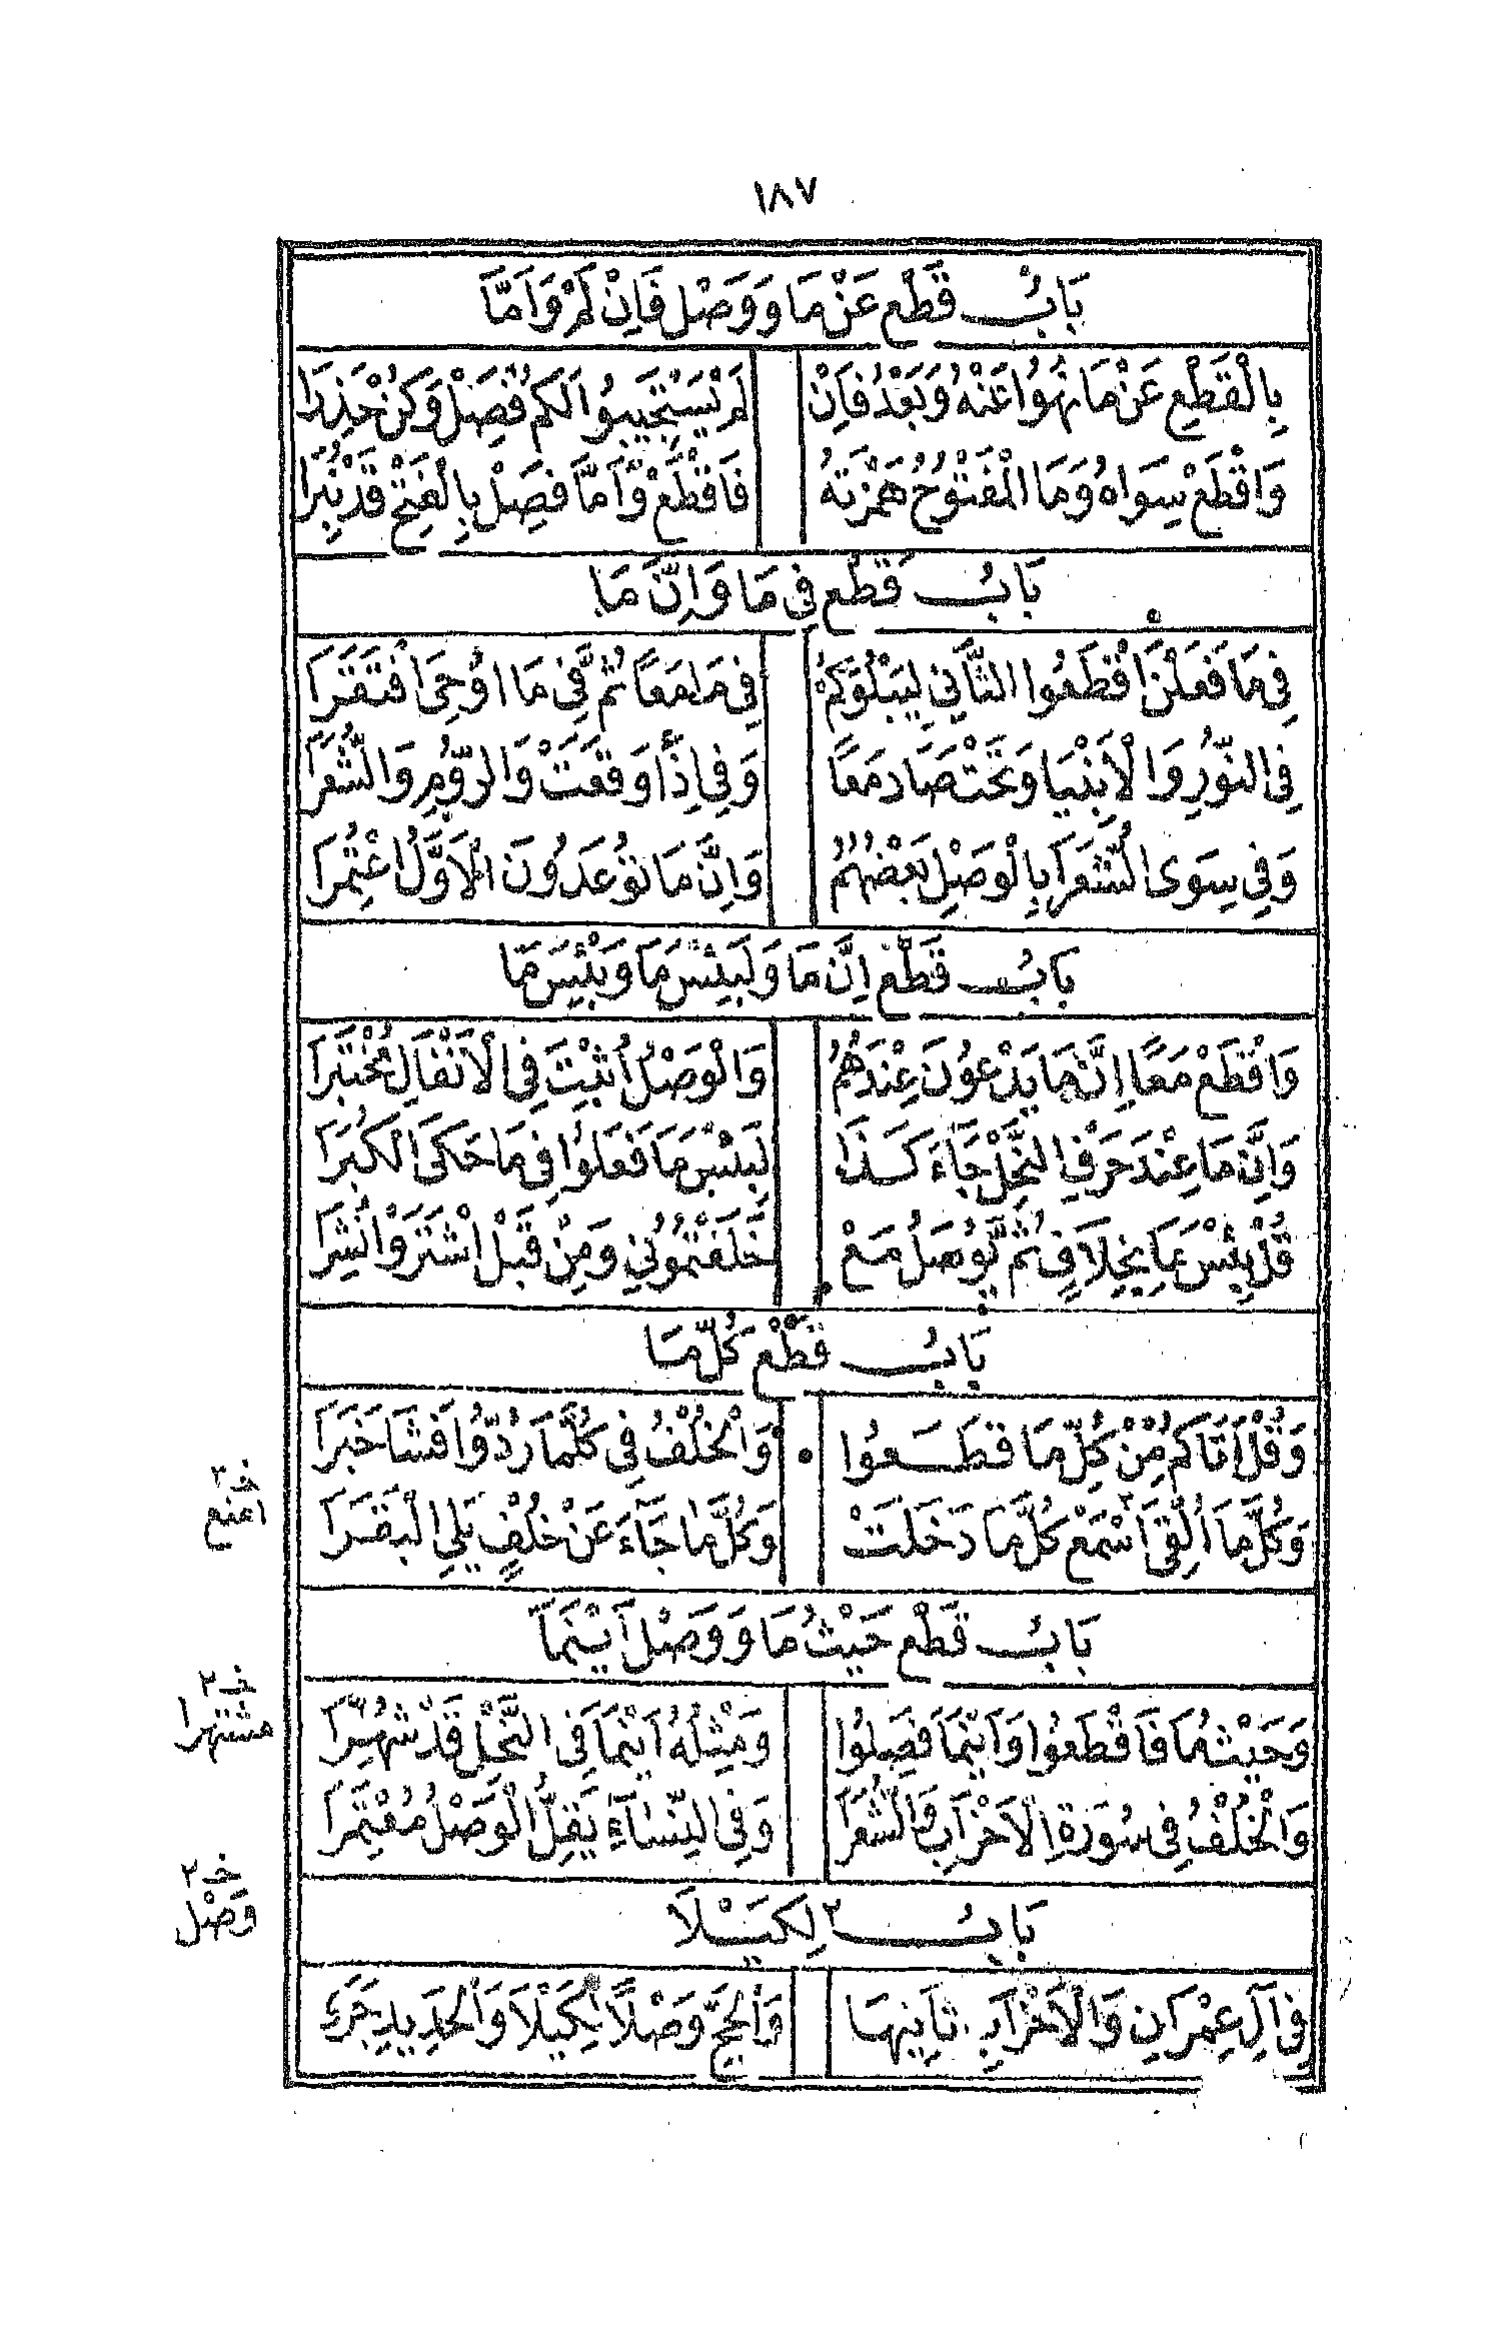 ١٨٧
بَابُ قَطْعِ عَنْ مَا وَوَصْلِ فَاِنْ لَمْ وَاَمَّا
بِالْقَطْعِ عَنْ مَا نُهُوا عَنْهُ وَبَعْدُ فَاِنْ لَمْ يَسْتَجِيبُوا لَكُمْ فُصِلْ وَكُنْ حَذِرَا
وَاقْطَعْ سِوَاهُ وَمَا الْمَفْتُوحُ هَمْزَتُهُ فَاقْطَعْ وَاَمَّا فَصِلْ بِالْفَتْحِ قَدْ نُبِرَا
بَابُ قَطْعِ فِي مَا وَاِنَّ مَا
فِي مَا فَعَلْنَ اقْطَعُوا الثَّانِي لِيَبْلُوَكُمْ فِي مَا مَعًا ثُمَّ فِي مَا اُوحِيَ افْتَقَرَا
فِي النُّورِ وَالْاَنْبِيَا وَتَحْتَ صَادَ مَعًا وَفِي اِذَا وَقَعَتْ وَالرُّومِ وَالشُّعَرَا
وَفِي سِوَى الشُّعَرَا بِالْوَصْلِ بَعْضُهُمُ وَاِنَّ مَا تُوعَدُونَ الْاَوَّلُ اعْتُمِرَا
بَابُ قَطْعِ اِنَّ مَا وَلَبِئْسَ مَا وَبِئْسَ مَا
وَاقْطَعْ مَعًا اِنَّمَا يَدْعُونَ عِنْدَهُمُ وَالْوَصْلُ اُثْبِتَ فِي الْاَنْفَالِ مُخْتَبَرَا
وَاِنَّ مَا عِنْدَ حَرْفِ النَّحْلِ جَاءَ كَذَا لَبِئْسَ مَا فَعَلُوا فِي مَا حَكَى الْكُبَرَا
قُلْ بِئْسَ مَا بِخِلَافٍ ثُمَّ يُوصَلُ مَعْ خَلَفْتُمُونِي وَمِنْ قَبْلُ اشْتَرَوْا نُشِرَا
بَابُ قَطْعِ كُلِّ مَا
وَقُلْ اَتَاكُمْ مِنْ كُلِّ مَا قَطَعُوا وَالْخُلْفُ فِي كُلَّمَا رُدُّوا فَشَا خَبَرَا
وَكُلَّمَا اُلْقِيَ اسْمَعْ كُلَّمَا دَخَلَتْ وَكُلَّمَا جَآءَ عَنْ خُلْفٍ يَلِي الْبَقَرَا
خـ٢
امنع
بَابُ قَطْعِ حَيْثُ مَا وَوَصْلِ اَيْنَمَا
وَحَيْثُمَا فَاقْطَعُوا وَاَيْنَمَا فَصِلُوا وَمِثْلُهُ اَيْنَمَا فِي النَّحْلِ قَدْ شُهِرَا
وَالْخُلْفُ فِي سُورَةِ الْاَحْزَابِ وَالشُّعَرَا وَفِي النِّسَآءِ يَقِلُّ الْوَصْلُ مُعْتَمِرَا
خـ٢
مشتهرا
بَابُ ٢ لِكَيْلَا
خـ٢
وَصْلِ
فِي آلِ عِمْرَانِ وَالْاَحْزَابِ ثَانِيهَا وَالْحَجِّ وَصْلًا لِكَيْلَا وَالْحَدِيدِ جَرَى